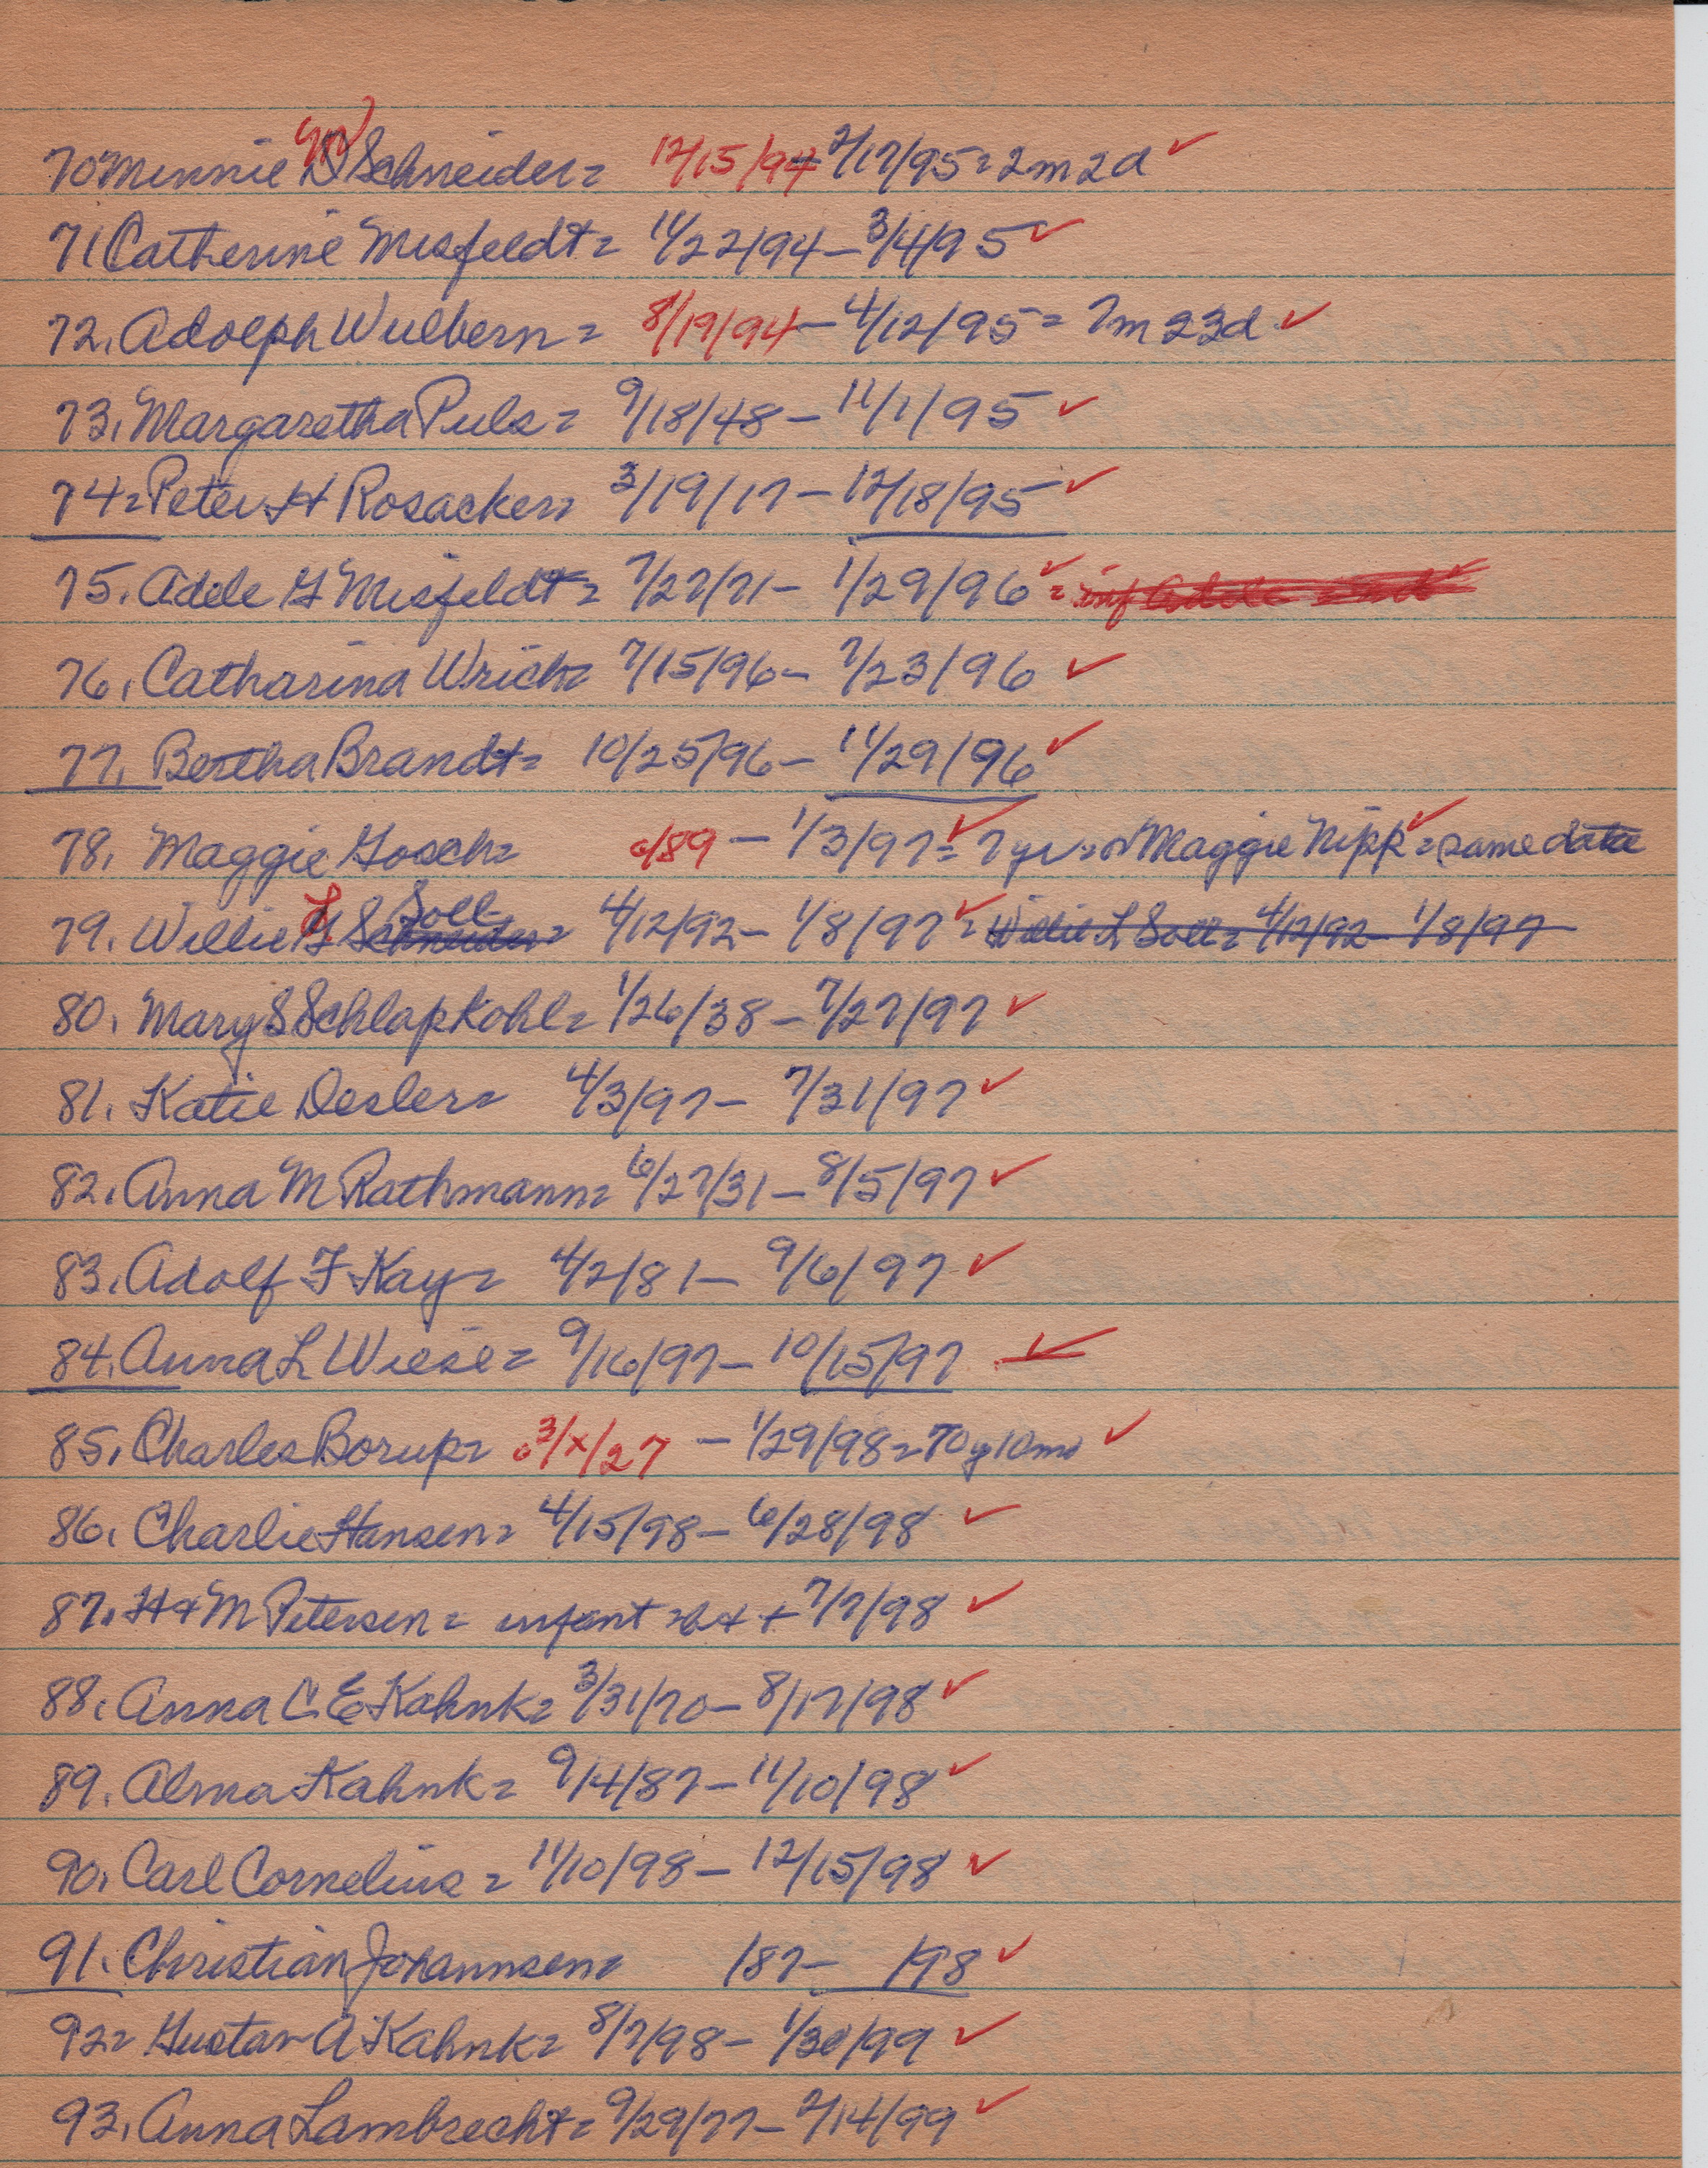 70 Minnie W Schneider = 12/15/94 - 2/17/95 = 2m 2d ✓
71 Catherine Misfeldt = 11/22/94 - 3/4/95 ✓
72. Adolph Wulbern = 8/19/94 - 4/12/95 = 7m 23d ✓
73. Margaretha Puls = 9/18/48 - 11/1/95 ✓
74 = Peter H Rosacker = 3/19/17 - 12/18/95 ✓
75. Adele G Misfeldt = 7/27/71 - 1/29/96 ✓ = inf Adele
76. Catharina Wrich = 7/15/96 - 7/23/96 ✓
77. Bertha Brandt = 10/25/96 - 11/29/96 ✓
78. Maggie Gosch = c/89 - 1/3/97 ✓ = 7 yr = or Maggie Nipp ✓ = same date
79. Willie L Soll Schneider = 4/12/92 - 1/8/97 ✓ = Willie L Soll = 4/12/92 - 1/8/97
80. Mary S Schlapkohl = 1/26/38 - 7/27/97 ✓
81. Katie Desler = 4/3/97 - 7/31/97 ✓
82. Anna M Rathmann = 6/27/31 - 8/5/97 ✓
83. Adolf F Kay = 4/2/81 - 9/6/97 ✓
84. Anna L Wiese = 9/16/97 - 10/15/97 ✓
85. Charles Borup = c 3/x/27 - 1/29/98 = 70y 10mo ✓
86. Charlie Hansen = 4/15/98 - 6/28/98 ✓
87. H & M Petersen = infant = b x + 7/7/98 ✓
88. Anna C E Kahnk = 3/31/70 - 8/17/98 ✓
89. Alma Kahnk = 9/14/87 - 11/10/98 ✓
90. Carl Cornelius = 11/10/98 - 12/15/98 ✓
91. Christian Johannsen = /87 - /98 ✓
92 = Gustav A Kahnk = 8/7/98 - 1/30/99 ✓
93. Anna Lambrecht = 9/29/77 - 2/14/99 ✓